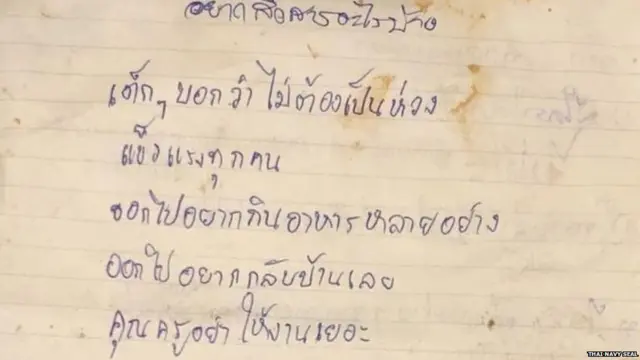 อยากสื่อสารอะไรบ้าง
เด็กๆ บอกว่า ไม่ต้องเป็นห่วง
แข็งแรงทุกคน
ออกไปอยากกินอาหารหลายอย่าง
ออกไป อยากกลับบ้านเลย
คุณครูอย่า ให้งานเยอะ
THAI NAVY SEAL